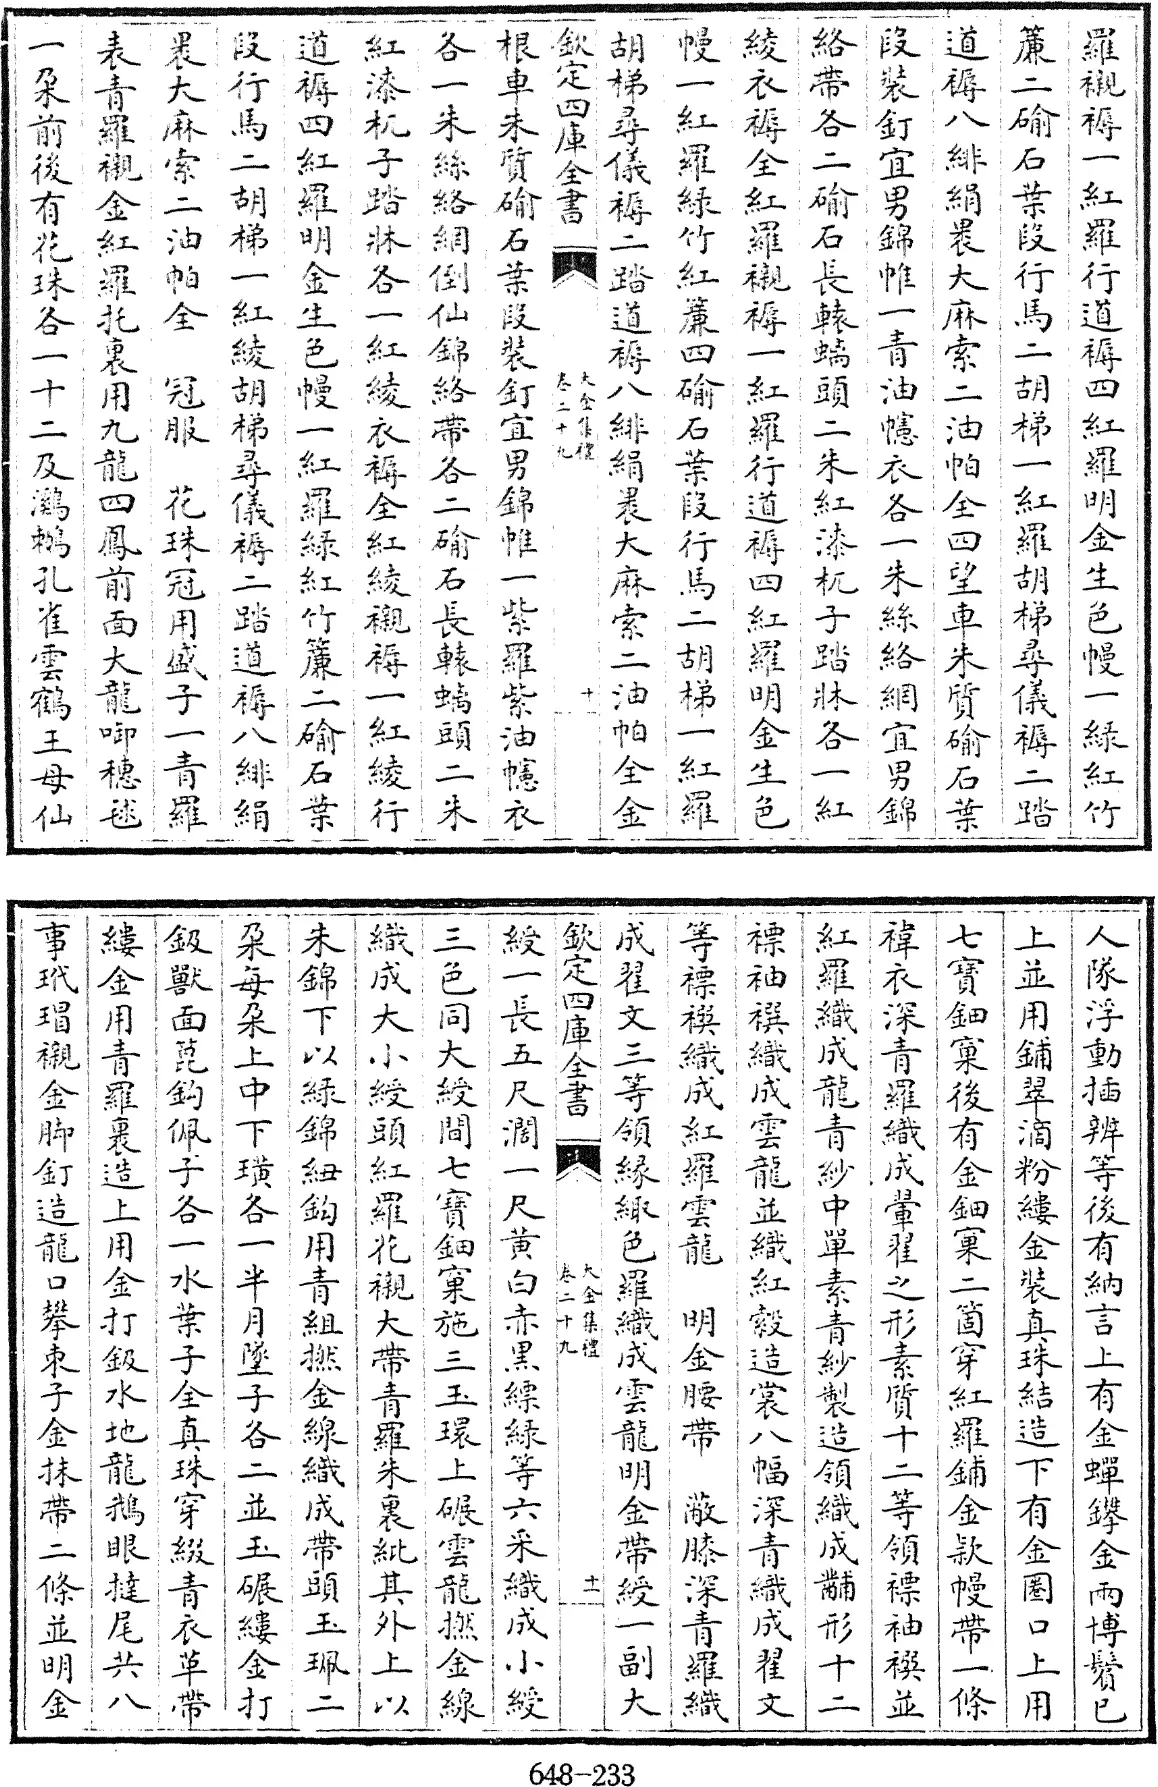 羅襯褥一紅羅行道褥四紅羅明金生色幔一綠紅竹
簾二鍮石葉段行馬二胡梯一紅羅胡梯尋儀褥二踏
道褥八緋絹裹大麻索二油帕全四望車朱質鍮石葉
段裝釘宜男錦帷一青油幰衣各一朱絲絡網宜男錦
絡帶各二鍮石長轅螭頭二朱紅漆杌子踏牀各一紅
綾衣褥全紅羅襯褥一紅羅行道褥四紅羅明金生色
幔一紅羅綠竹紅簾四鍮石葉段行馬二胡梯一紅羅
胡梯尋儀褥二踏道褥八緋絹裹大麻索二油帕全金
欽定四庫全書
大金集禮
卷二十九
十
根車朱質鍮石葉段裝釘宜男錦帷一紫羅紫油幰衣
各一朱絲絡網倒仙錦絡帶各二鍮石長轅螭頭二朱
紅漆杌子踏牀各一紅綾衣褥全紅綾襯褥一紅綾行
道褥四紅羅明金生色幔一紅羅綠紅竹簾二鍮石葉
段行馬二胡梯一紅綾胡梯尋儀褥二踏道褥八緋絹
裹大麻索二油帕全　冠服　花珠冠用盛子一青羅
表青羅襯金紅羅托裏用九龍四鳳前面大龍啣穗毬
一朶前後有花珠各一十二及鸂鶒孔雀雲鶴王母仙
人隊浮動插辨等後有納言上有金蟬鑻金兩博鬢已
上並用鋪翠滴粉縷金裝真珠結造下有金圈口上用
七寶鈿窠後有金鈿窠二箇穿紅羅鋪金款幔帶一條
褘衣深青羅織成翬翟之形素質十二等領褾袖襈並
紅羅織成龍青紗中單素青紗製造領織成黼形十二
褾袖襈織成雲龍並織紅縠造裳八幅深青織成翟文
等褾襈織成紅羅雲龍　明金腰帶　蔽膝深青羅織
成翟文三等領緣緅色羅織成雲龍明金帶綬一副大
欽定四庫全書
大金集禮
卷二十九
十一
綬一長五尺濶一尺黄白赤黒縹緑等六采織成小綬
三色同大綬間七寶鈿窠施三玉環上碾雲龍撚金線
織成大小綬頭紅羅花襯大帶青羅朱裏紕其外上以
朱錦下以緑錦紐鈎用青組撚金線織成帶頭玉珮二
朶每朶上中下璜各一半月墜子各二並玉碾縷金打
鈒獸面箆鈎佩子各一水葉子全真珠穿綴青衣革帶
縷金用青羅裏造上用金打鈒水地龍鵝眼撻尾共八
事玳瑁襯金脚釘造龍口攀束子金抹帶二條並明金
648-233